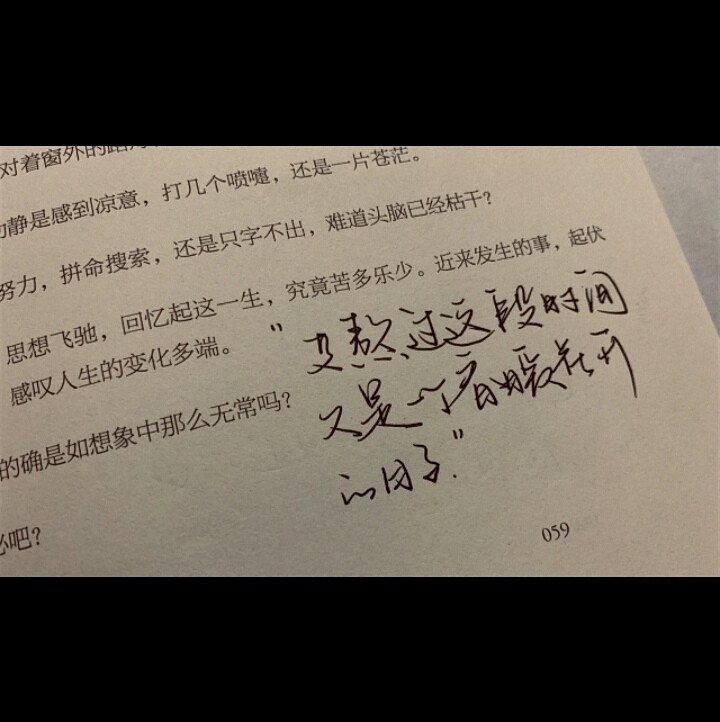 对着窗外的路灯
静是感到凉意，打几个喷嚏，还是一片苍茫。
努力，拼命搜索，还是只字不出，难道头脑已经枯干？
思想飞驰，回忆起这一生，究竟苦多乐少。近来发生的事，起伏
感叹人生的变化多端。
"又熬过这段时间
又是一个春暖花开
的日子"
的确是如想象中那么无常吗？
必吧？
059